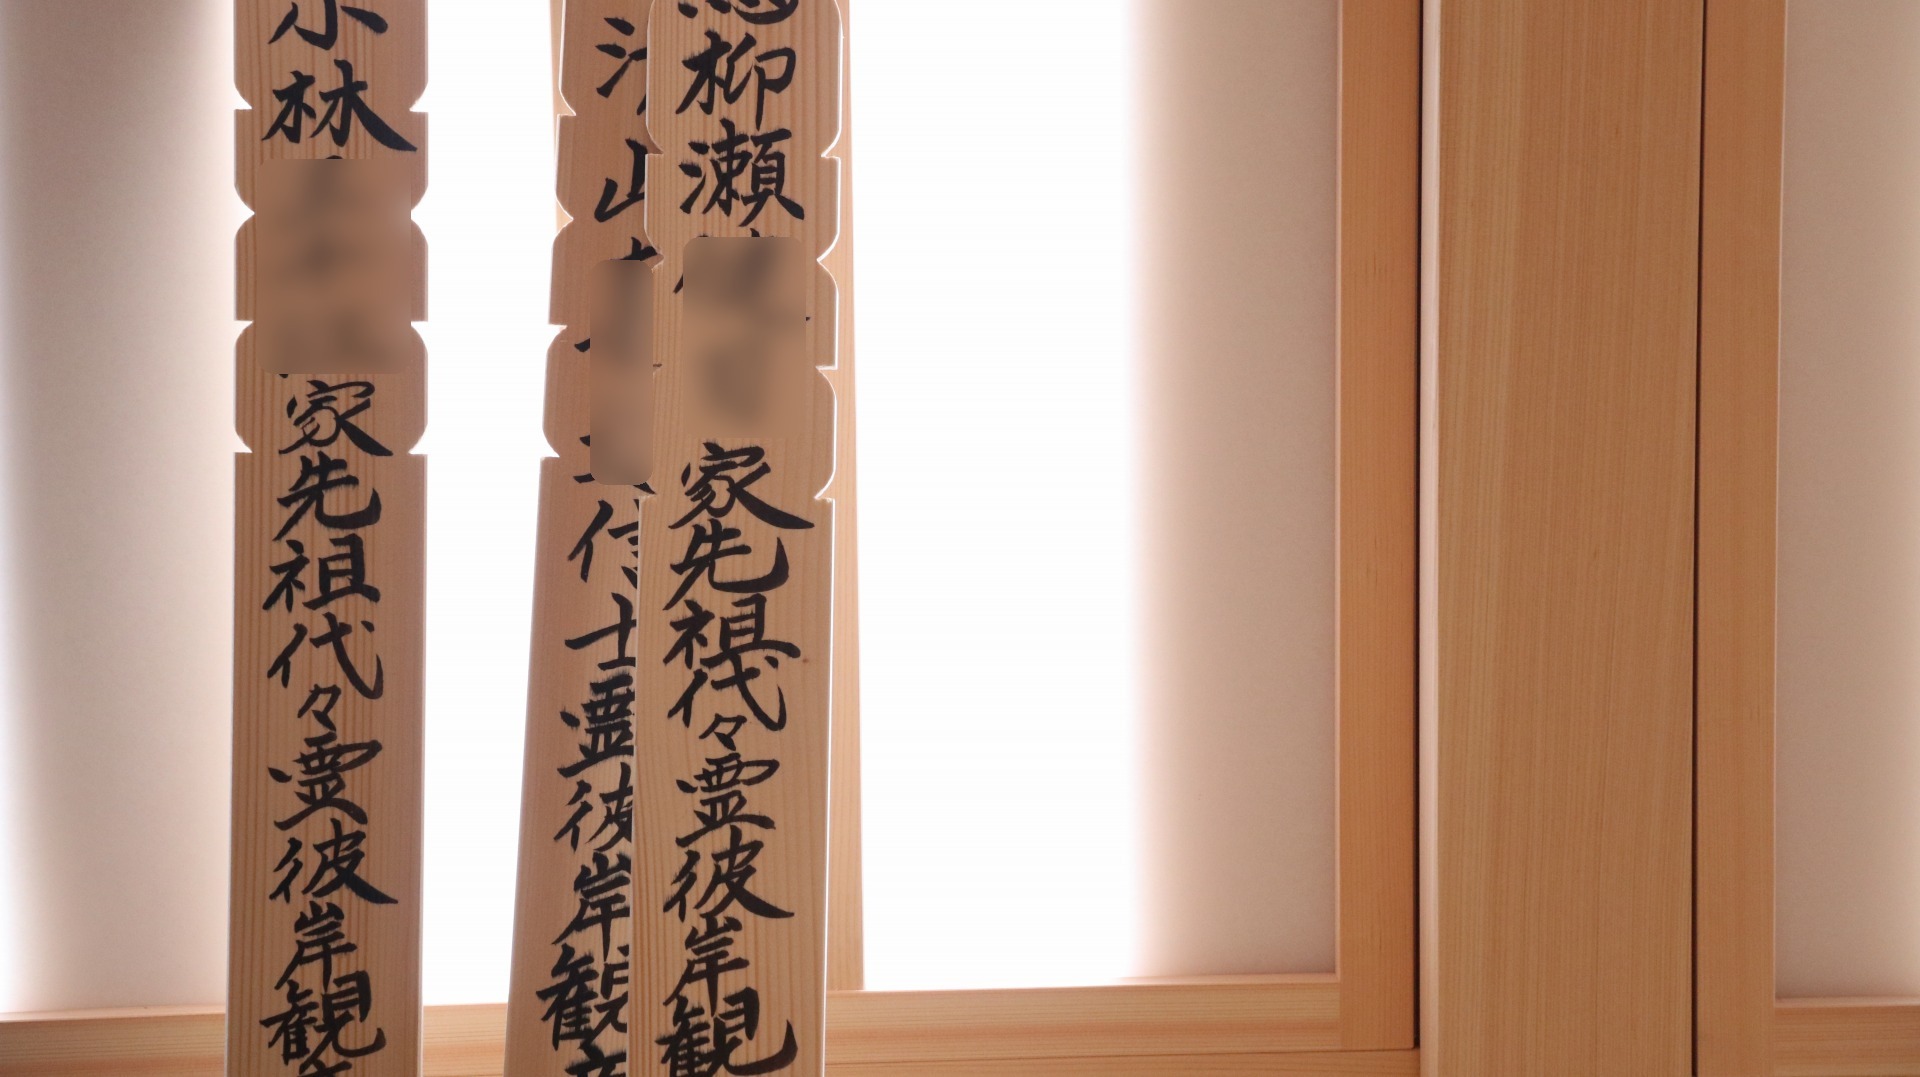 柳瀬 家先祖代々霊彼岸観
山 信士霊彼岸観
林 家先祖代々霊彼岸観